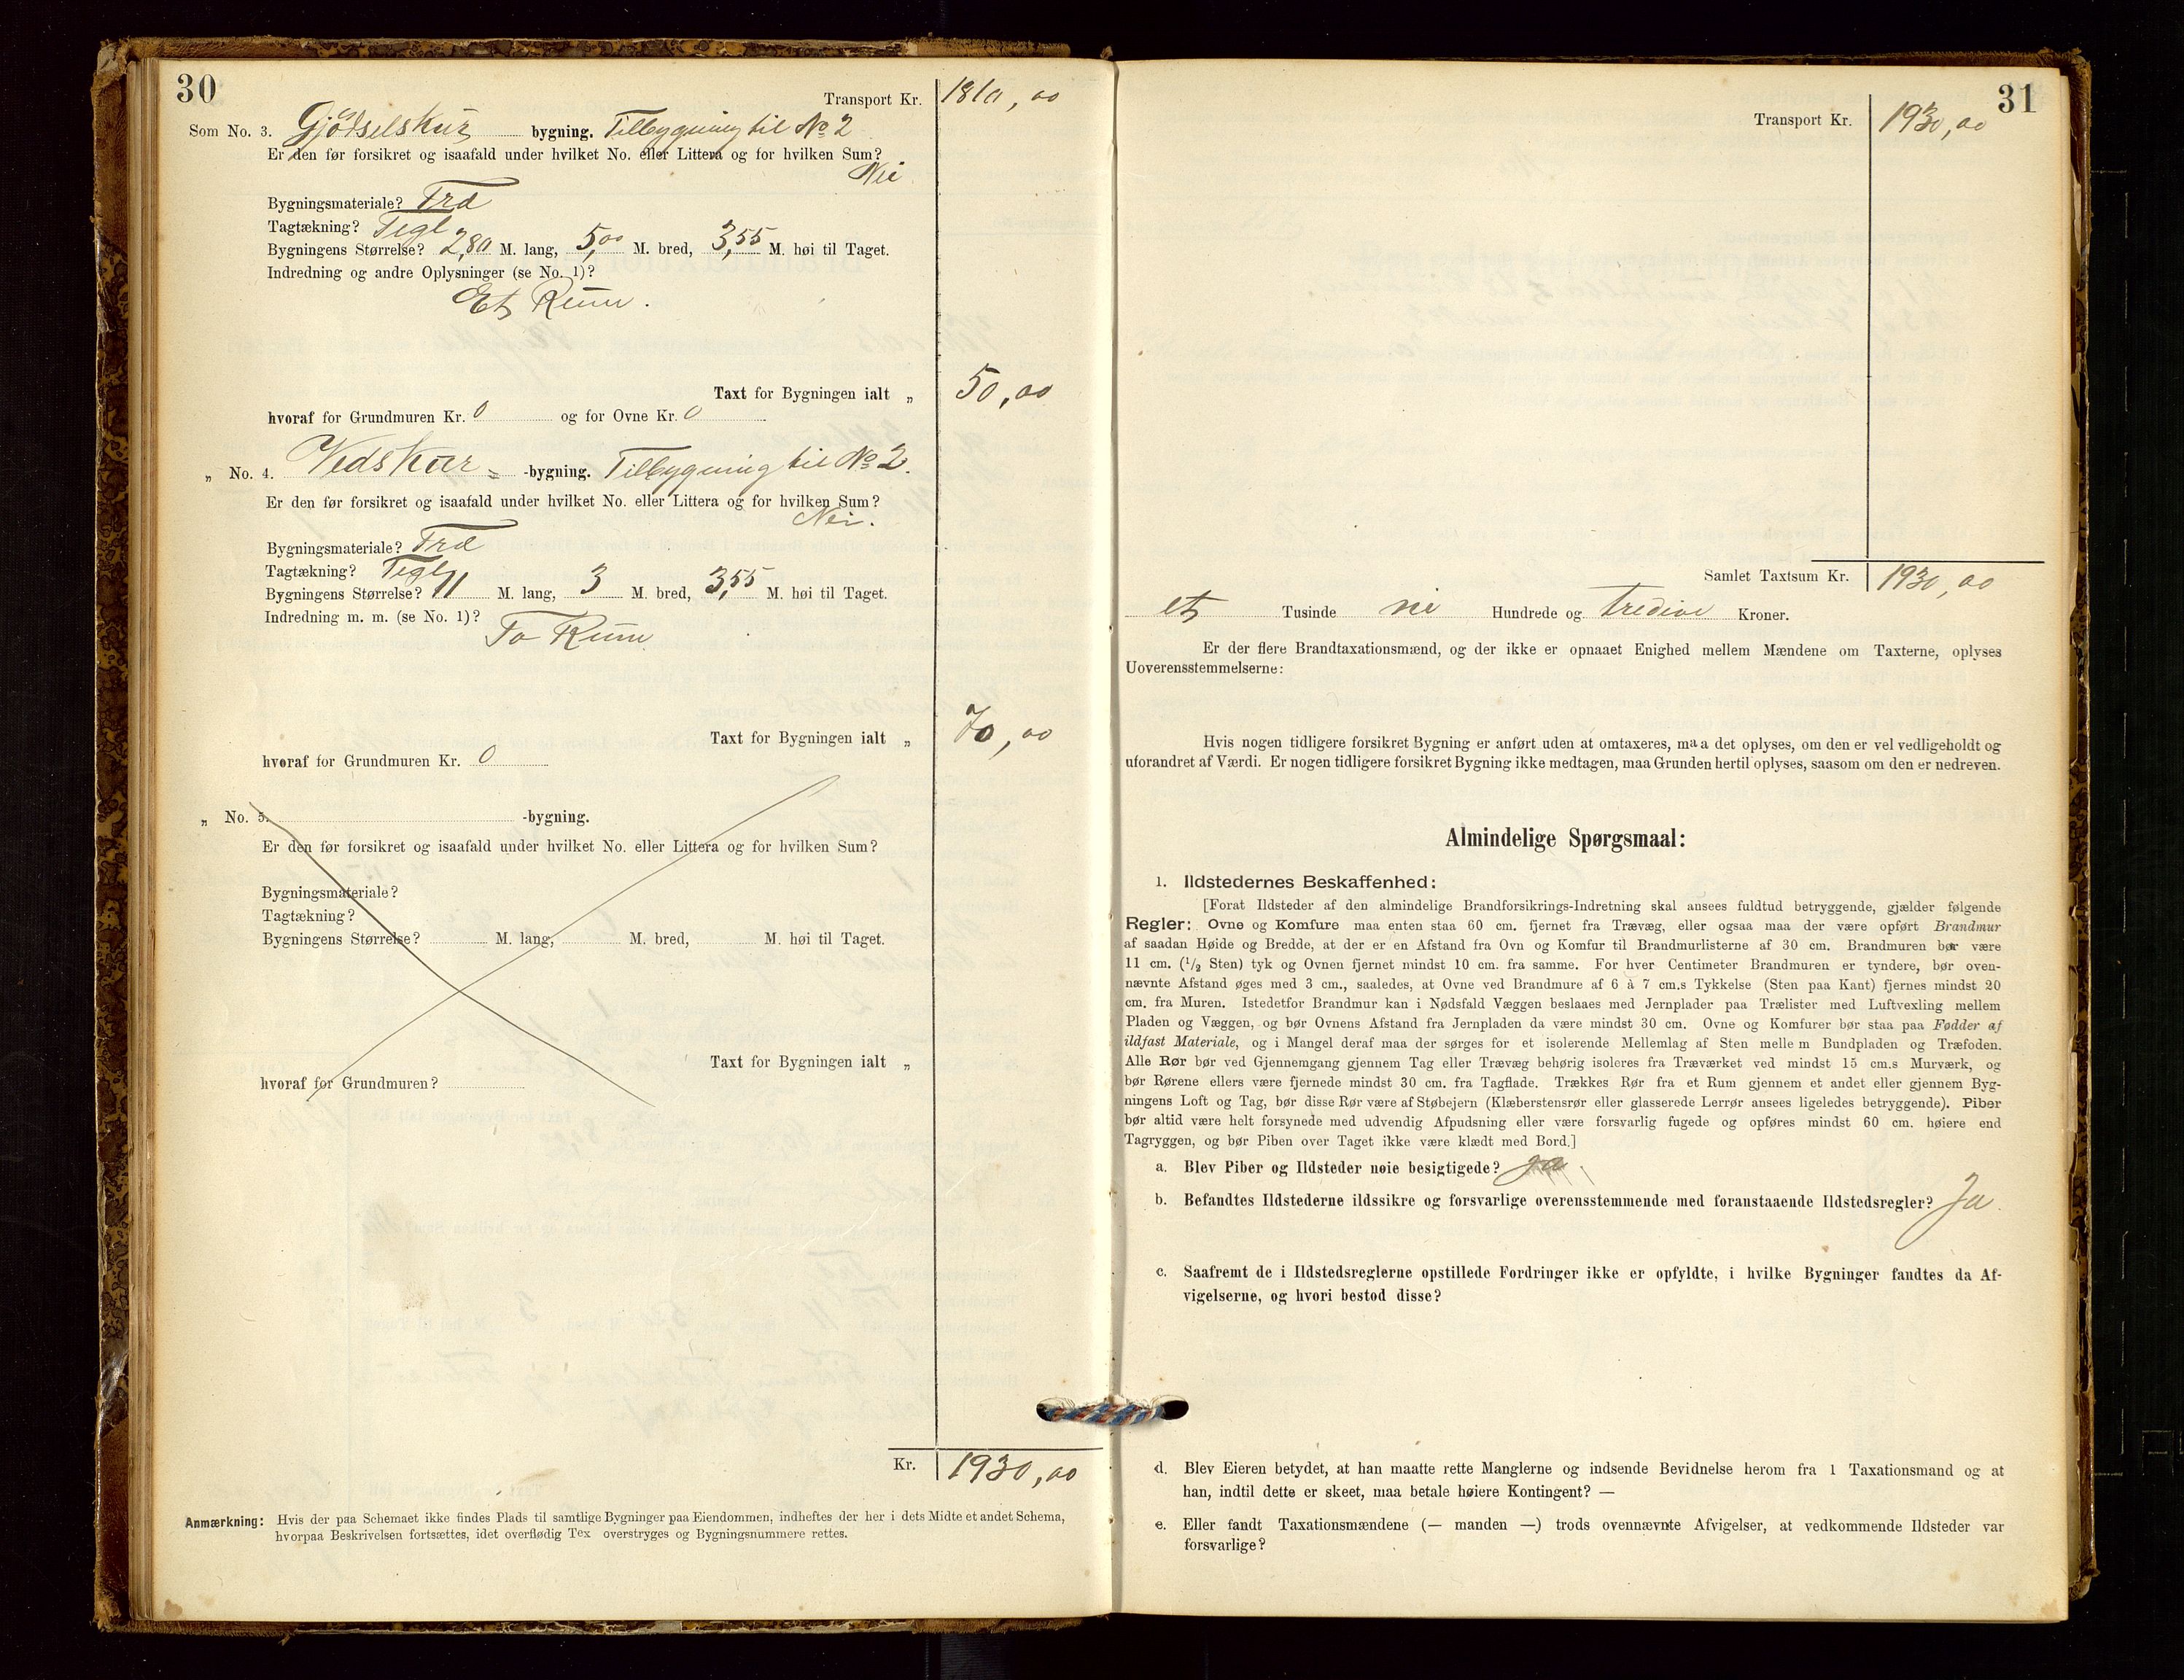 30
Transport Kr. 1810,00
Som No. 3. Gjödselskur bygning. Tilbygning til No 2
Er den før forsikret og isaafald under hvilket No. eller Littera og for hvilken Sum?
Nei
Bygningsmateriale? Træ
Tagtækning? Tegl
Bygningens Størrelse? 2,80 M. lang, 5,00 M. bred, 3,55 M. høi til Taget.
Indredning og andre Oplysninger (se No. 1)?
Et Rum.
Taxt for Bygningen ialt „ 50,00
hvoraf for Grundmuren Kr. 0 og for Ovne Kr. 0
„ No. 4. Vedskur -bygning. Tilbygning til No 2.
Er den før forsikret og isaafald under hvilket No. eller Littera og for hvilken Sum?
Nei.
Bygningsmateriale? Træ
Tagtækning? Tegl
Bygningens Størrelse? 11 M. lang, 3 M. bred, 3,55 M. høi til Taget.
Indredning m. m. (se No. 1)?
To Rum
Taxt for Bygningen ialt „ 70,00
hvoraf for Grundmuren Kr. 0
„ No. 5. -bygning.
Er den før forsikret og isaafald under hvilket No. eller Littera og for hvilken Sum?
Bygningsmateriale?
Tagtækning?
Bygningens Størrelse? M. lang, M. bred, M. høi til Taget.
Taxt for Bygningen ialt „
hvoraf for Grundmuren?
Kr. 1930,00
Anmærkning: Hvis der paa Schemaet ikke findes Plads til samtlige Bygninger paa Eiendommen, indheftes der her i dets Midte et andet Schema,
hvorpaa Beskrivelsen fortsættes, idet overflødig Tex overstryges og Bygningsnummere rettes.
31
Transport Kr. 1930,00
Samlet Taxtsum Kr. 1930,00
et Tusinde ni Hundrede og tredive Kroner.
Er der flere Brandtaxationsmænd, og der ikke er opnaaet Enighed mellem Mændene om Taxterne, oplyses
Uoverensstemmelserne:
Hvis nogen tidligere forsikret Bygning er anført uden at omtaxeres, maa det oplyses, om den er vel vedligeholdt og
uforandret af Værdi. Er nogen tidligere forsikret Bygning ikke medtagen, maa Grunden hertil oplyses, saasom om den er nedreven.
Almindelige Spørgsmaal:
1. Ildstedernes Beskaffenhed:
[Forat Ildsteder af den almindelige Brandforsikrings-Indretning skal ansees fuldtud betryggende, gjælder følgende
Regler: Ovne og Komfure maa enten staa 60 cm. fjernet fra Trævæg, eller ogsaa maa der være opført Brandmur
af saadan Høide og Bredde, at der er en Afstand fra Ovn og Komfur til Brandmurlisterne af 30 cm. Brandmuren bør være
11 cm. (1/2 Sten) tyk og Ovnen fjernet mindst 10 cm. fra samme. For hver Centimeter Brandmuren er tyndere, bør oven-
nævnte Afstand øges med 3 cm., saaledes, at Ovne ved Brandmure af 6 à 7 cm.s Tykkelse (Sten paa Kant) fjernes mindst 20
cm. fra Muren. Istedetfor Brandmur kan i Nødsfald Væggen beslaaes med Jernplader paa Trælister med Luftvexling mellem
Pladen og Væggen, og bør Ovnens Afstand fra Jernpladen da være mindst 30 cm. Ovne og Komfurer bør staa paa Fødder af
ildfast Materiale, og i Mangel deraf maa der sørges for et isolerende Mellemlag af Sten mellem Bundpladen og Træfoden.
Alle Rør bør ved Gjennemgang gjennem Tag eller Trævæg behørig isoleres fra Træværket ved mindst 15 cm.s Murværk, og
bør Rørene ellers være fjernede mindst 30 cm. fra Tagflade. Trækkes Rør fra et Rum gjennem et andet eller gjennem Byg-
ningens Loft og Tag, bør disse Rør være af Støbejern (Klæberstensrør eller glasserede Lerrør ansees ligeledes betryggende). Piber
bør altid være helt forsynede med udvendig Afpudsning eller være forsvarlig fugede og opføres mindst 60 cm. høiere end
Tagryggen, og bør Piben over Taget ikke være klædt med Bord.]
a. Blev Piber og Ildsteder nøie besigtigede? Ja
b. Befandtes Ildstederne ildssikre og forsvarlige overensstemmende med foranstaaende Ildstedsregler? Ja
c. Saafremt de i Ildstedsreglerne opstillede Fordringer ikke er opfyldte, i hvilke Bygninger fandtes da Af-
vigelserne, og hvori bestod disse?
d. Blev Eieren betydet, at han maatte rette Manglerne og indsende Bevidnelse herom fra 1 Taxationsmand og at
han, indtil dette er skeet, maa betale høiere Kontingent? —
e. Eller fandt Taxationsmændene (— manden —) trods ovennævnte Afvigelser, at vedkommende Ildsteder var
forsvarlige?